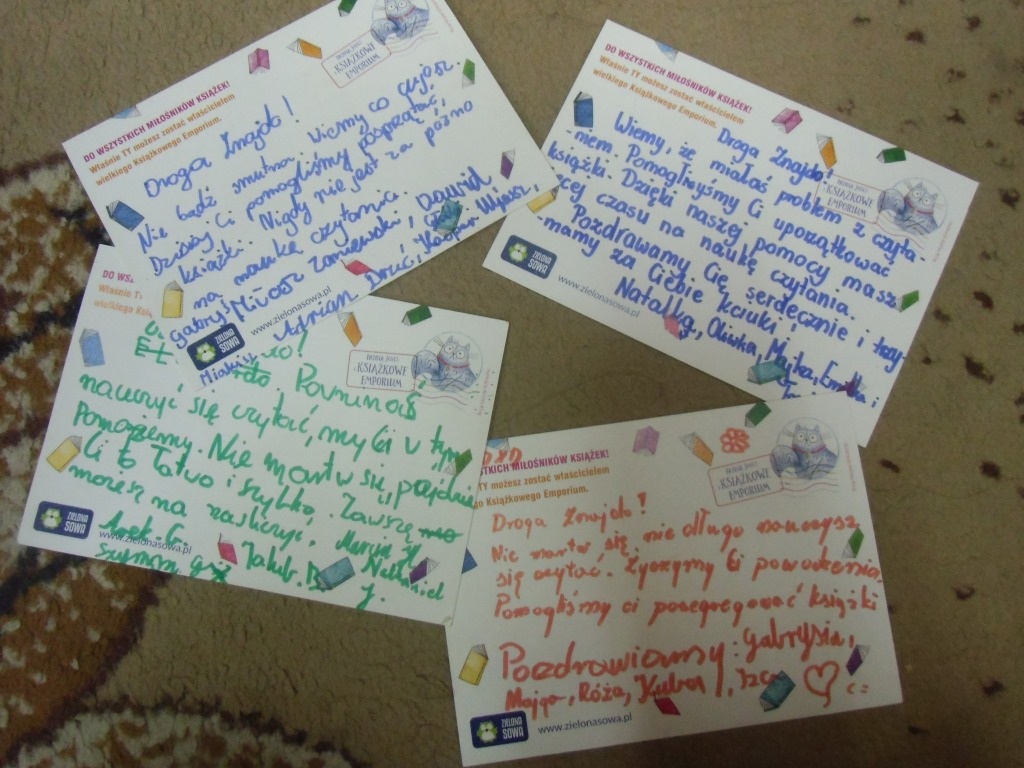 DO WSZYSTKICH MIŁOŚNIKÓW KSIĄŻEK!
Właśnie TY możesz zostać właścicielem
wielkiego Książkowego Emporium.
KSIĄŻKOWE
EMPORIUM
Droga Znajdo!
Nie bądź smutna. Wiemy co czujesz.
Dzisiaj Ci pomogliśmy posprzątać
książki. Nigdy nie jest za późno
na naukę czytania.
Miłosz Zaniewski, Dawid,
Gabryś, Adrian Druć, Kacper Wyłasz,
ZIELONA
SOWA
www.zielonasowa.pl
DO WSZYSTKICH MIŁOŚNIKÓW KSIĄŻEK!
Właśnie TY możesz zostać właścicielem
wielkiego Książkowego Emporium.
KSIĄŻKOWE
EMPORIUM
Droga Znajdo!
Wiemy, że miałaś problem z czyta-
-niem. Pomogliśmy Ci uporządkować
książki. Dzięki naszej pomocy masz
więcej czasu na naukę czytania.
Pozdrawiamy Cię serdecznie i trzy-
-mamy za Ciebie kciuki!
Natalka, Oliwka, Majka, Emilka i
ZIELONA
SOWA
www.zielonasowa.pl
DO WS
Właśnie T
wielkiego Ksią
KSIĄŻKOWE
EMPORIUM
nauczyć się czytać, my Ci w tym
pomożemy. Nie martw się, pójdzie
Ci to łatwo i szybko. Zawsze
możesz na nas liczyć.
Jakub. Marcja Nataniel
Szymon
ZIELONA
SOWA
www.zielonasowa.pl
STKICH MIŁOŚNIKÓW KSIĄŻEK!
TY możesz zostać właścicielem
o Książkowego Emporium.
KSIĄŻKOWE
EMPORIUM
Droga Znajdo!
Nie martw się nie długo nauczysz
się czytać. Życzymy Ci powodzenia.
Pomogliśmy ci posegregować książki
Pozdrawiamy: Gabrysia,
Maja, Róża, Kuba
ZIELONA
SOWA
www.zielonasowa.pl